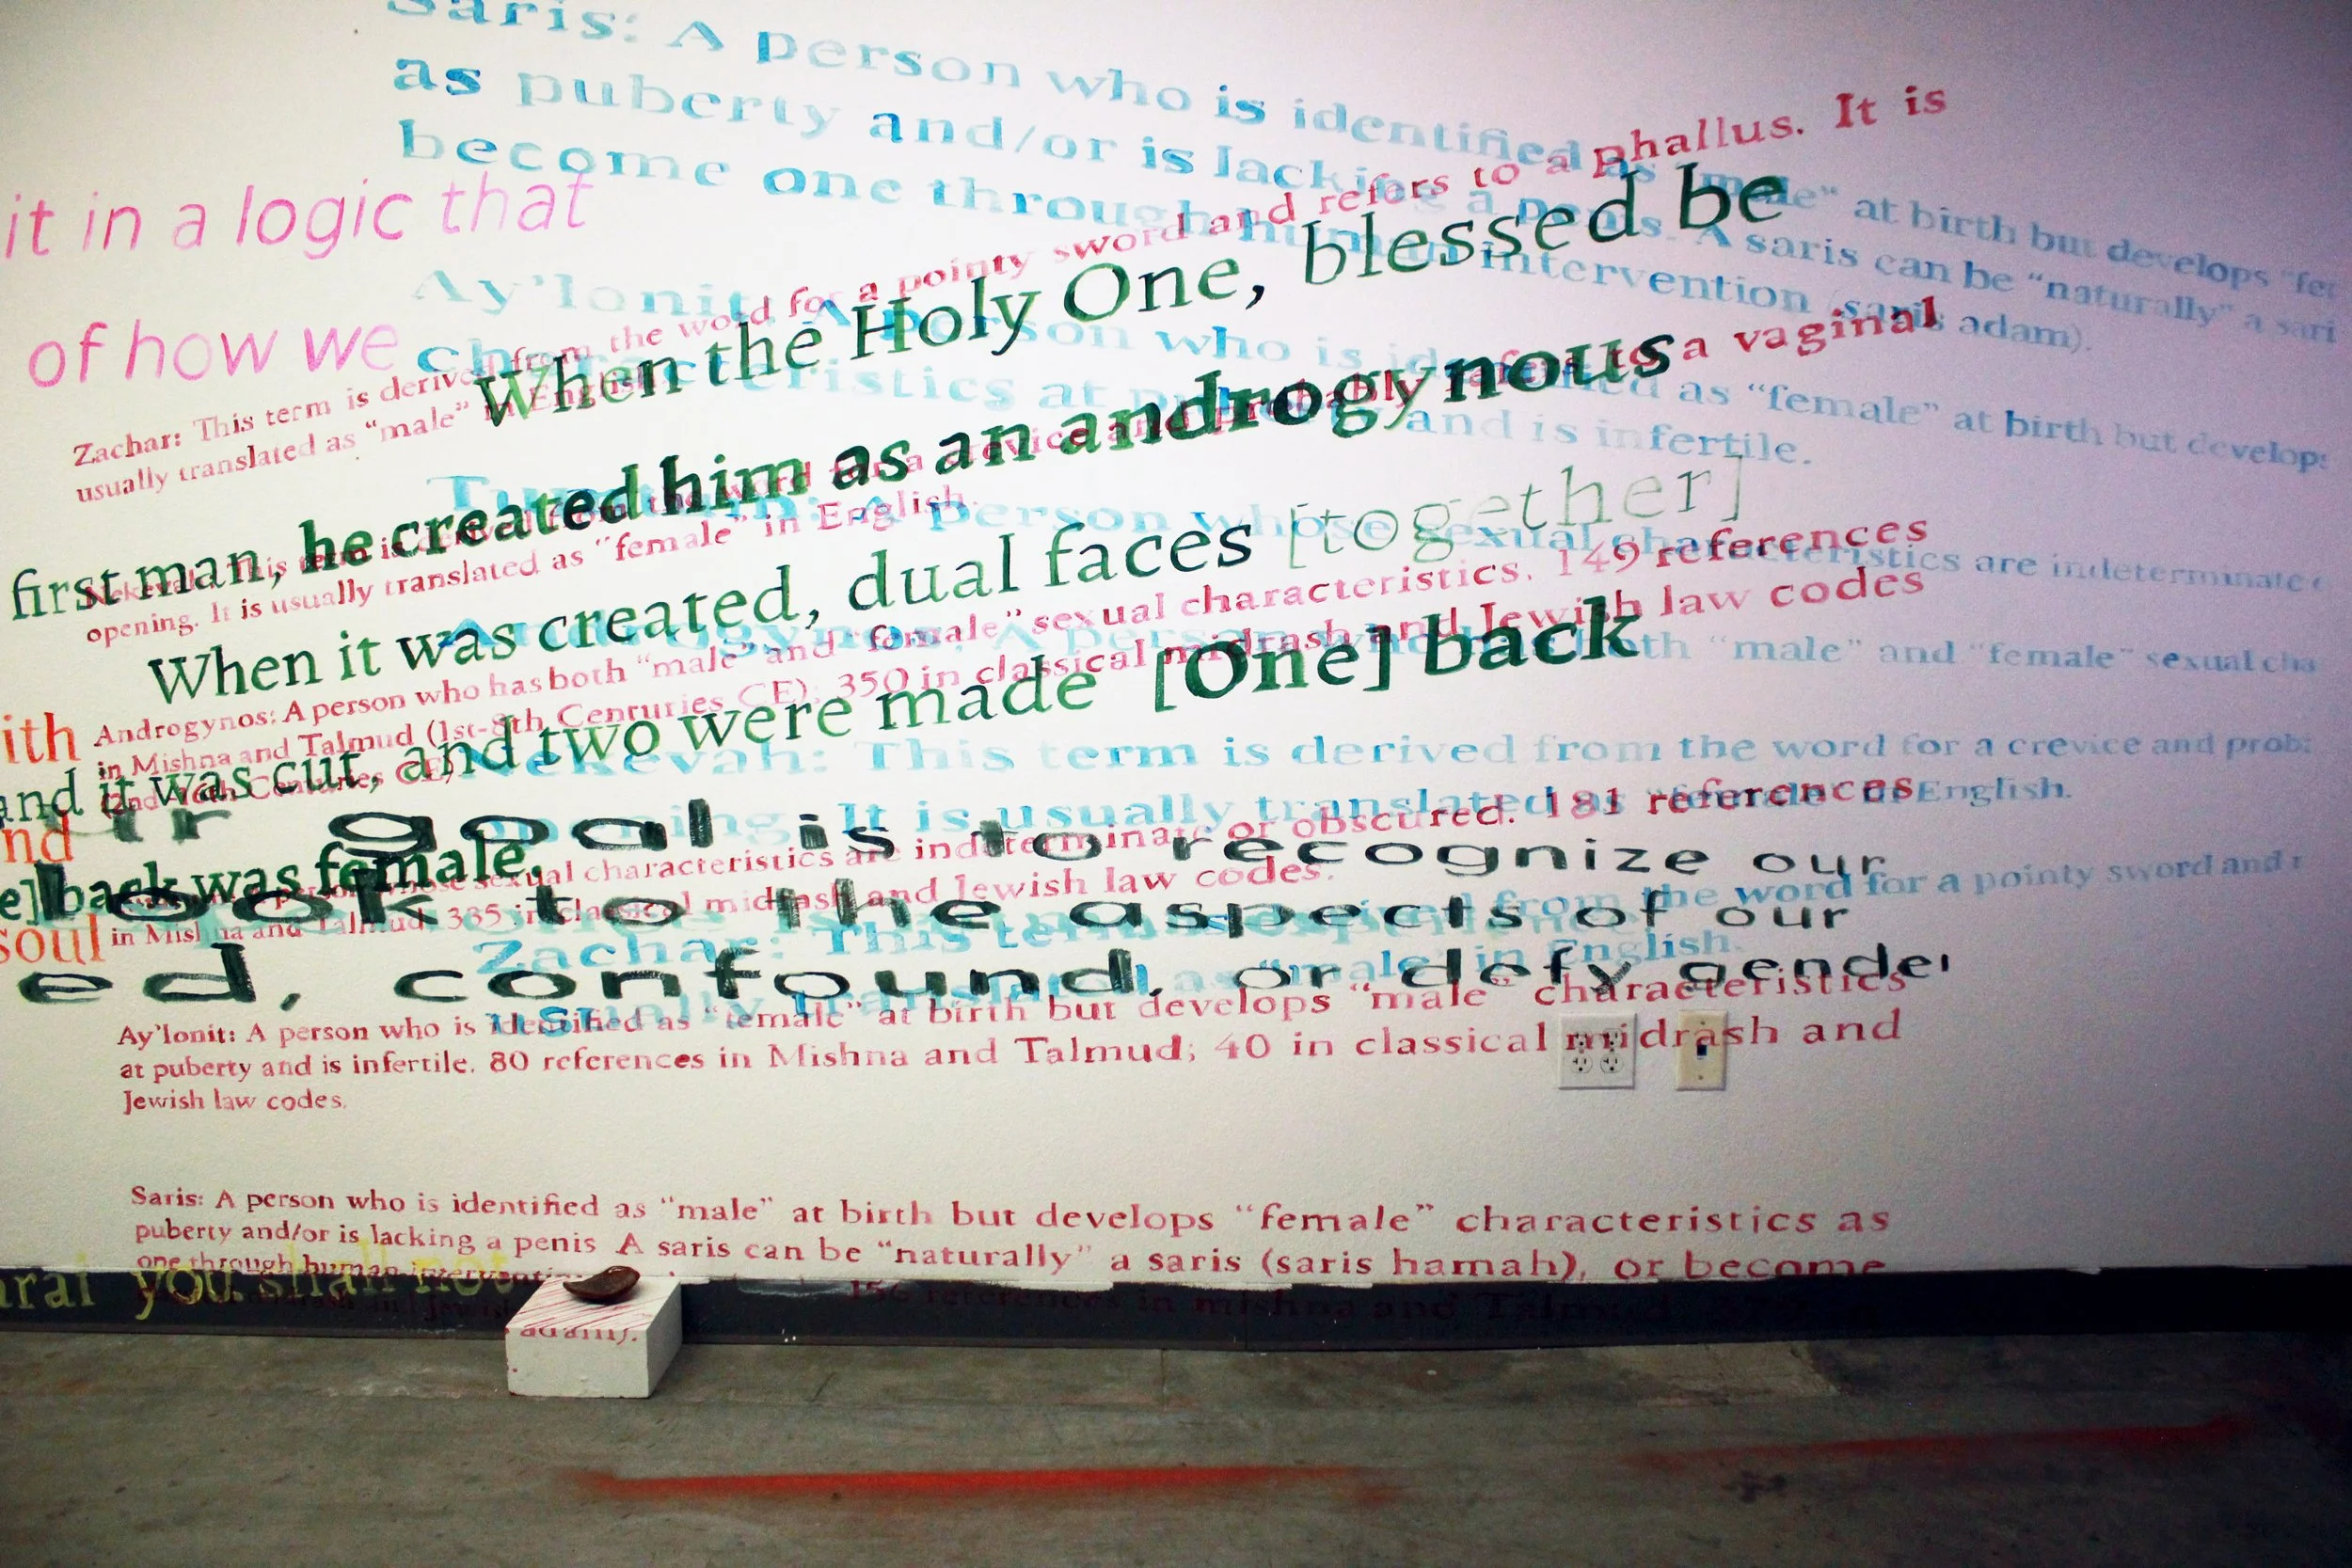 Saris: A person who is identified as "male" at birth but develops
as puberty and/or is lacking a penis. A saris can be "naturally" a sari
become one through human intervention (saris adam).
Ay'lonit: A person who is identified as "female" at birth but develops
characteristics at puberty and is infertile.
person whose sexual characteristics are indeterminate
both "male" and "female" sexual cha
Nekevah: This term is derived from the word for a crevice and prob
opening. It is usually translated as "female" in English.
Zachar: This term is derived from the word for a pointy sword and
usually translated as "male" in English.
it in a logic that
of how we
Zachar: This term is derived from the word for a pointy sword and refers to a phallus. It is
usually translated as "male" in English.
term is derived from the word for a crevice and probably refers to a vaginal
opening. It is usually translated as "female" in English.
Androgynos: A person who has both "male" and "female" sexual characteristics. 149 references
in Mishna and Talmud (1st-8th Centuries CE); 350 in classical midrash and Jewish law codes
sexual characteristics are indeterminate or obscured. 181 references
in Mishna and Talmud; 335 in classical midrash and Jewish law codes.
Ay'lonit: A person who is identified as "female" at birth but develops "male" characteristics
at puberty and is infertile. 80 references in Mishna and Talmud; 40 in classical midrash and
Jewish law codes.
Saris: A person who is identified as "male" at birth but develops "female" characteristics as
puberty and/or is lacking a penis A saris can be "naturally" a saris (saris hamah), or become
one through human
156 references in mishna and Talmud
adam).
When the Holy One, blessed be
first man, he created him as an androgynous
When it was created, dual faces [together]
and it was cut, and two were made [One] back
e] back was female.
ith
nd
soul
r goal is to recognize our
look to the aspects of our
ed, confound, or defy gender
you shall not